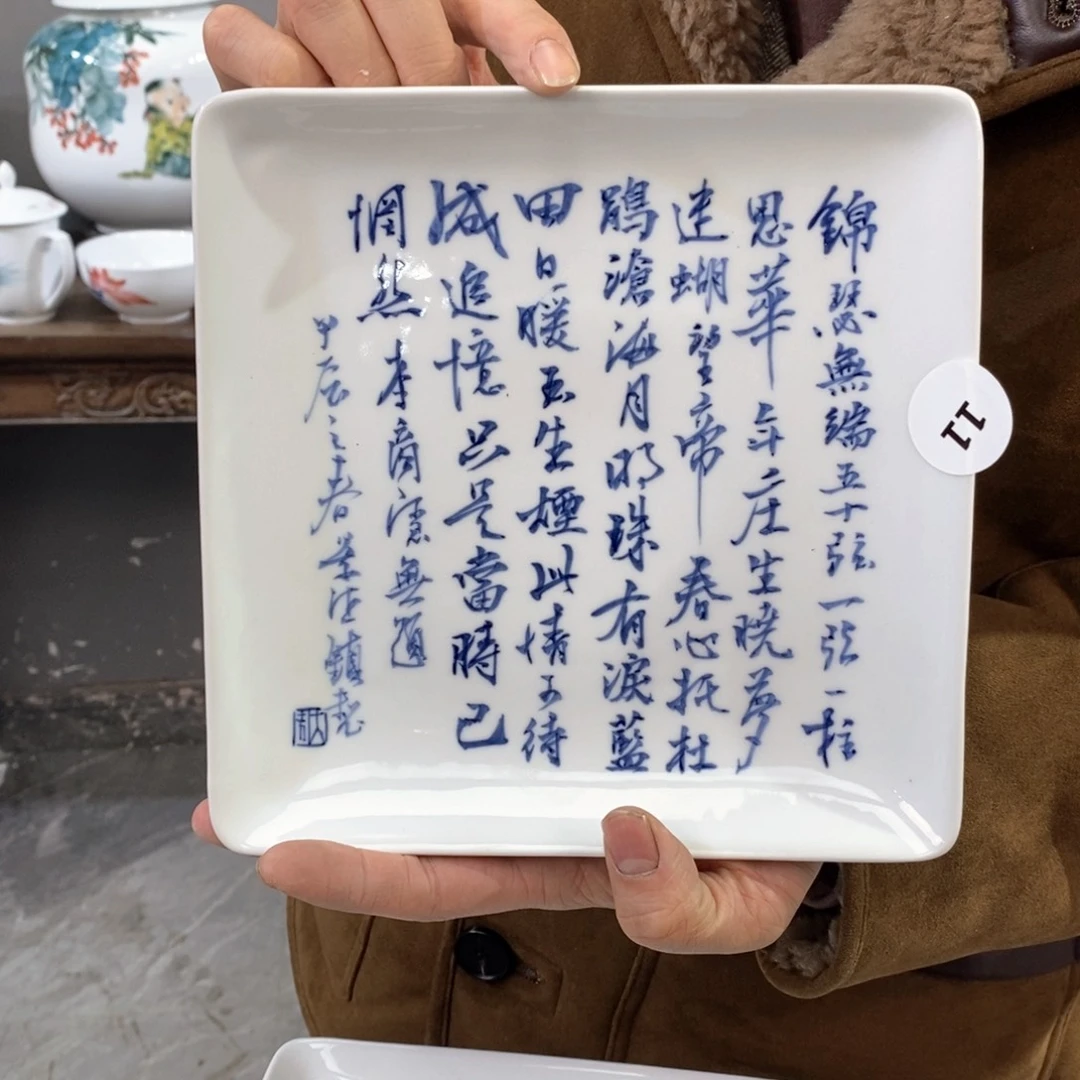 錦瑟無端五十弦一弦一柱
思華年庄生曉夢
迷蝴望帝春心托杜
鵑滄海月明珠有淚藍
田日暖玉生煙此情可待
成追憶只是當時已
惘然李商隱無題
甲辰之春景德鎮
11